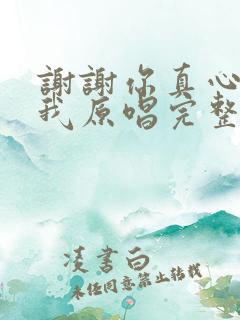 謝謝你真心
我原唱完整
凌書白
未任同意禁止轉載